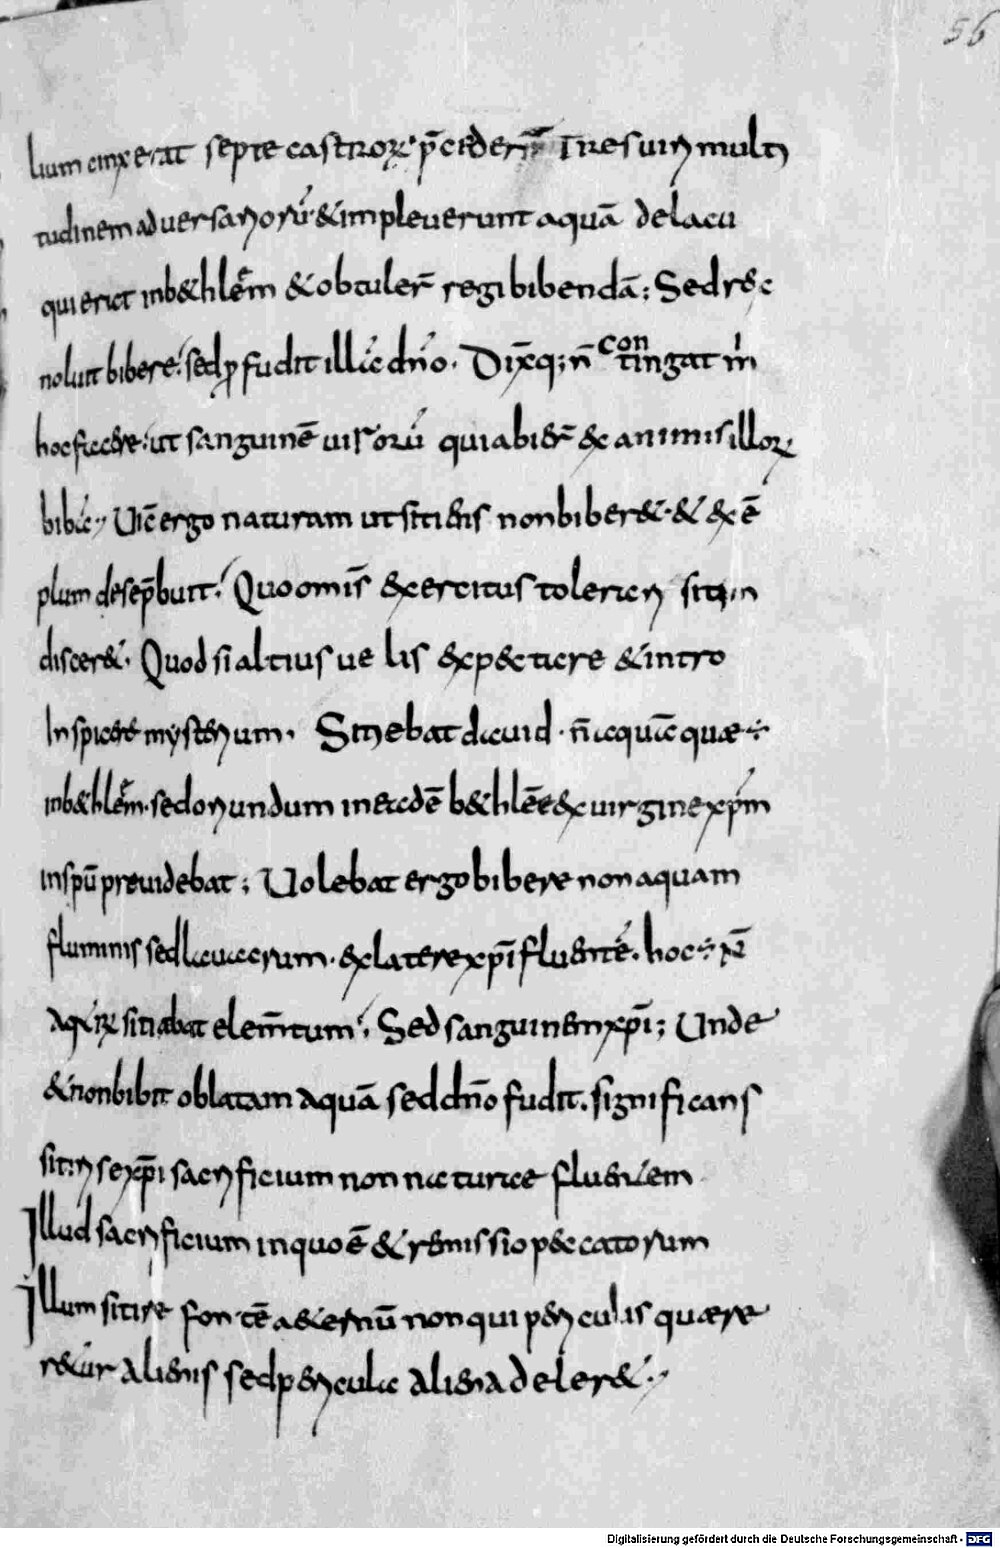 56
lium cinxerat septe castroꝝ p̄ciderūt Tres uiri multi
tudinem aduersarioru᷑ &impleuerunt aquā delacu
qui erat inb&hlem̄ &obtuler̄ regi bibendā; Sed rex
noluit bibere. sed ꝓfudit illā dn̄o. Dix̄q; n̄ contingat m̄
hoc facere. ut sanguinē uiroru᷑ quiabier̄ &animis illoꝝ
bibā; Uic̄ ergo naturam ut sitiens nonbiber&. & exē
plum dese p̄buit. Quo omis̄ exercitus tolerari sitim
discer&. Quod si altius ue lis expectare &intro
Inspicere mysterium. Sitiebat dauid. n̄ aquā quae ÷
inb&hlem̄. sed oriundum ineadē b&hlēe exuirgine xp̄m
inspū preuidebat; Uolebat ergo bibere non aquam
fluminis sed lauacrum. exlatere xp̄i fluente᷑. hoc ÷ n̄
aquaꝝ sitiabat elem̄tum. Sed sanguinem xp̄i; Unde
&nonbibit oblatam aquā sed dn̄o fudit. significans
sitiri se xp̄i sacrificium non naturae fluentem
Illud sacrificium inquo ē & remissio peccatorum
Illum sitire fontē a&ernū non qui periculis quaere
r&ur alienis sed pericula aliena deler&.
Digitalisierung gefördert durch die Deutsche Forschungsgemeinschaft - DFG